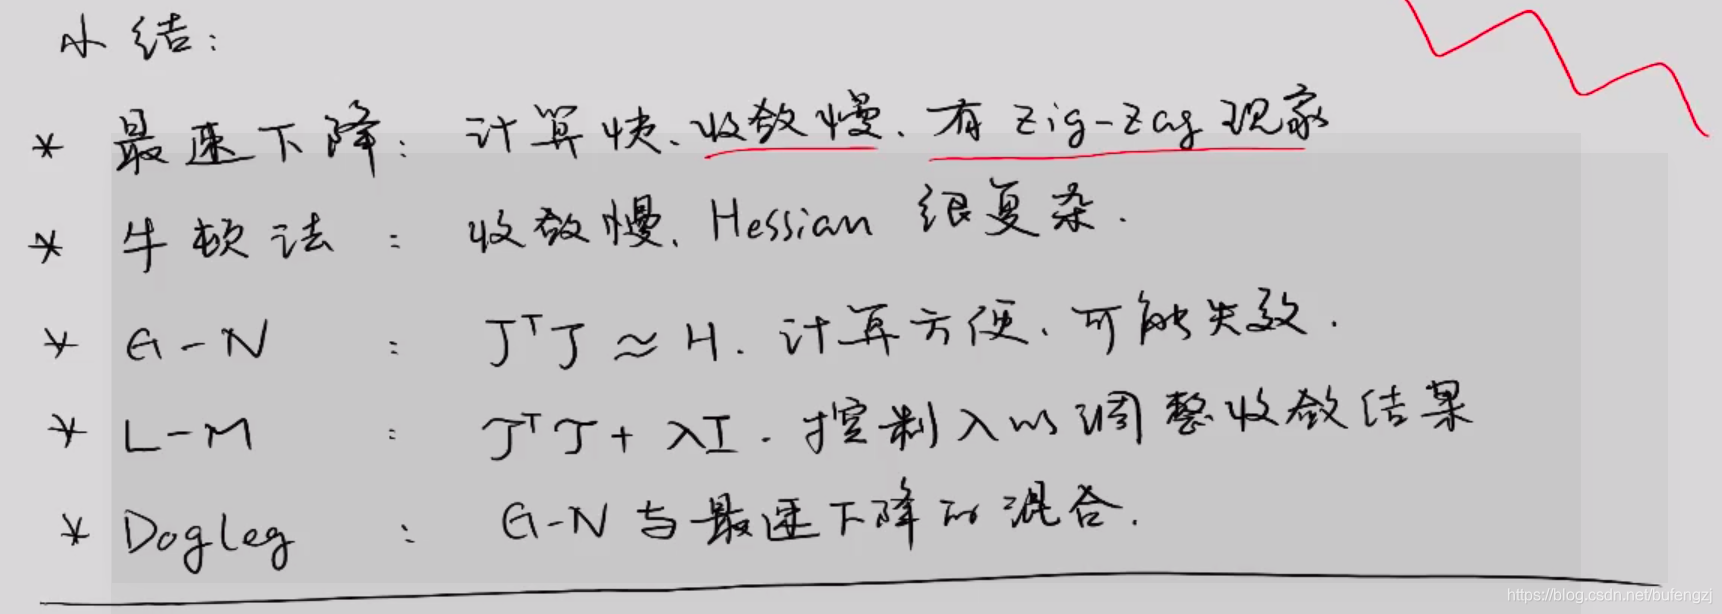 小结:
* 最速下降: 计算快、收敛慢、有 zig-zag 现象
* 牛顿法 : 收敛慢、Hessian 很复杂.
* G-N : JᵀJ ≈ H. 计算方便、可能失效.
* L-M : JᵀJ + λI. 控制 λ 以调整收敛结果
* Dogleg : G-N 与最速下降的混合.
https://blog.csdn.net/bufengzj